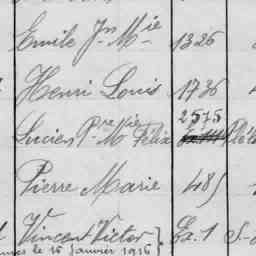 Emile Jn Mie 1326
Henri Louis 1736
2575
Lucien Pre Mie Félix
Pierre Marie 485
Vincent Victor }. Ex. 1 S-
le 15 Janvier 1916